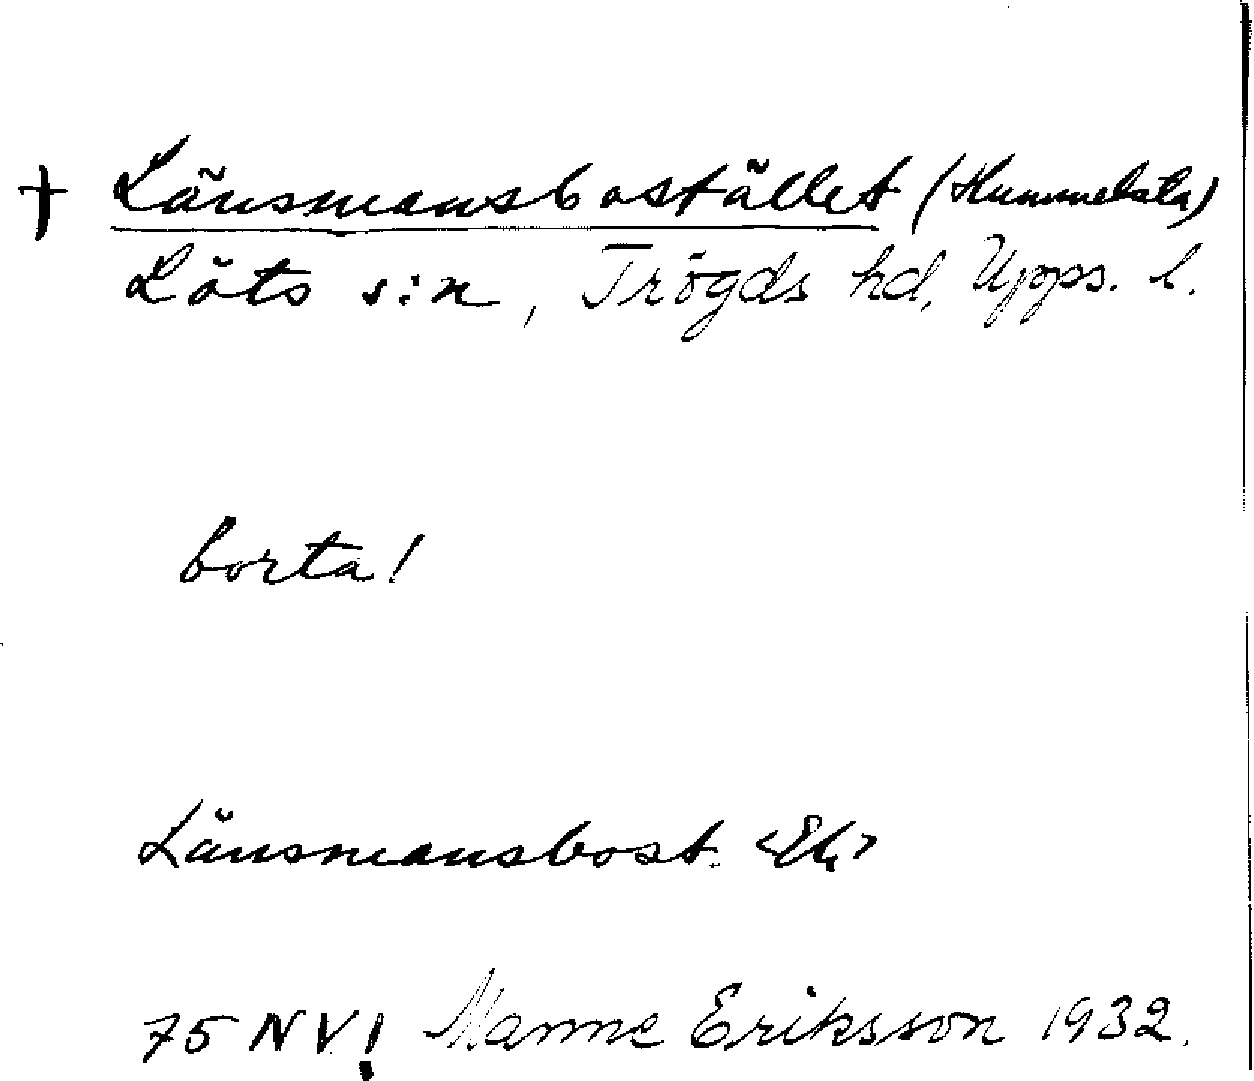 † Länsmansbostället (Hummelsta)
Löts s:n, Trögds hd, Upps. l.
borta!
Länsmansbost. <Ek>
75 NV! Manne Eriksson 1932.